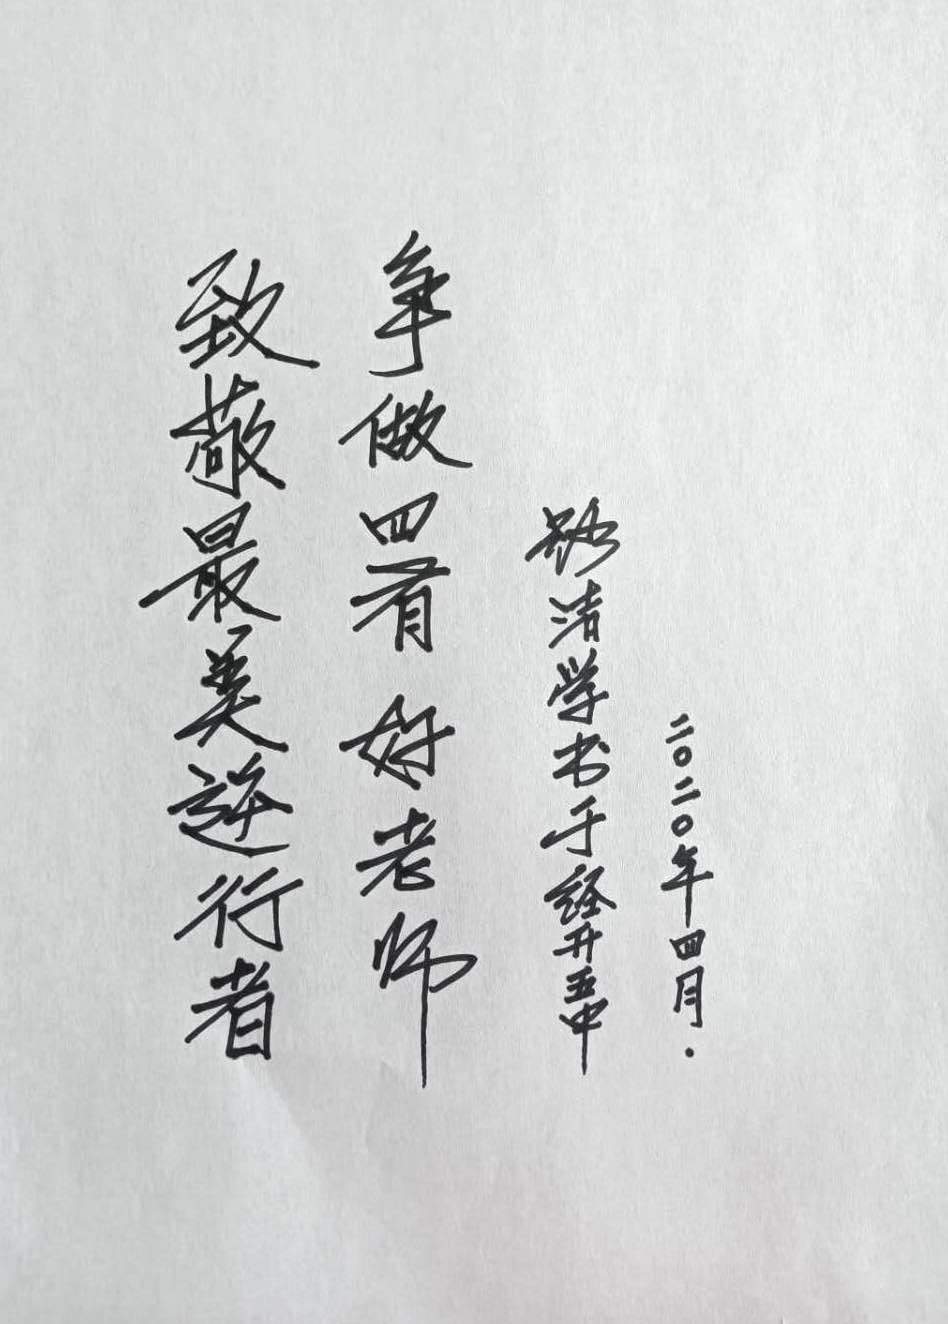 致敬最美逆行者
争做四有好老师
路清学书于经开五中
二〇二〇年四月.